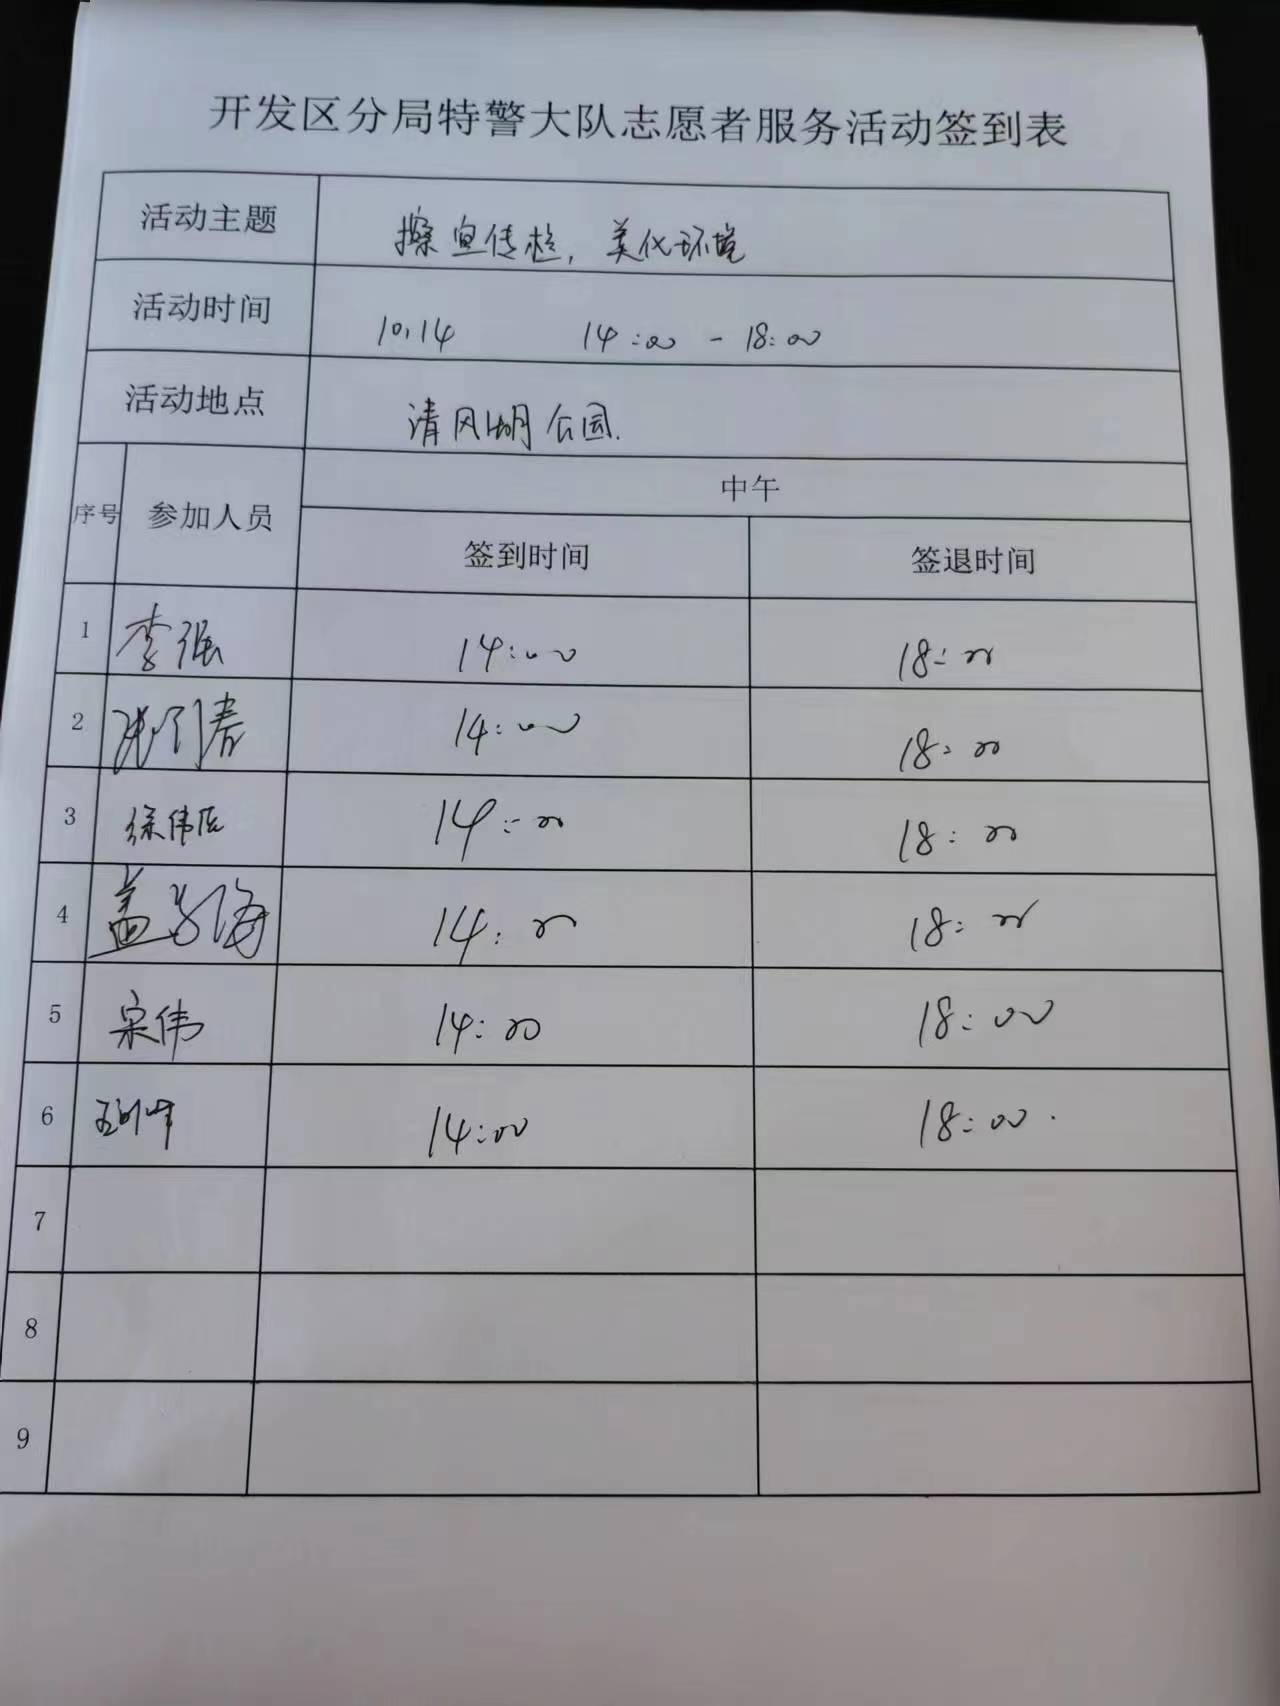 开发区分局特警大队志愿者服务活动签到表
活动主题 擦宣传栏，美化环境
活动时间 10.14 14:00 - 18:00
活动地点 清风湖公园.
序号 参加人员 中午
签到时间 签退时间
1 李强 14:00 18:00
2 14:00 18:00
3 徐伟 14:00 18:00
4 盖 海 14:00 18:00
5 宋伟 14:00 18:00
6 14:00 18:00.
7
8
9